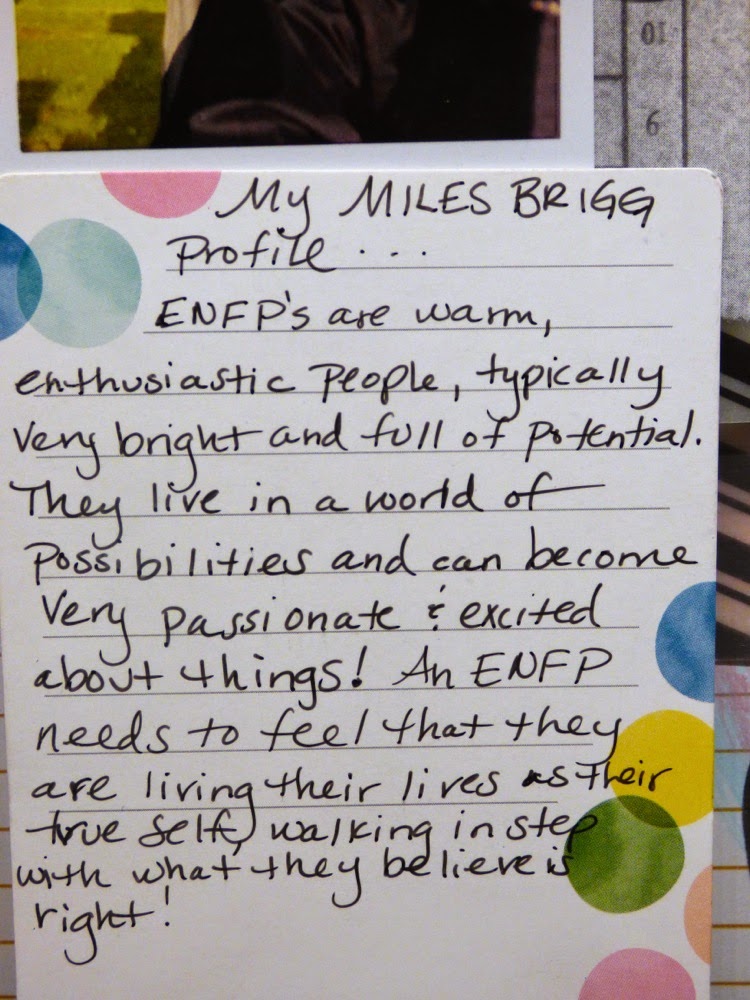 10
9
My MILES BRIGG
Profile . . .
ENFP's are warm,
enthusiastic People, typically
very bright and full of potential.
They live in a world of
possibilities and can become
very passionate & excited
about things! An ENFP
needs to feel that they
are living their lives as their
true self, walking in step
with what they believe is
right!